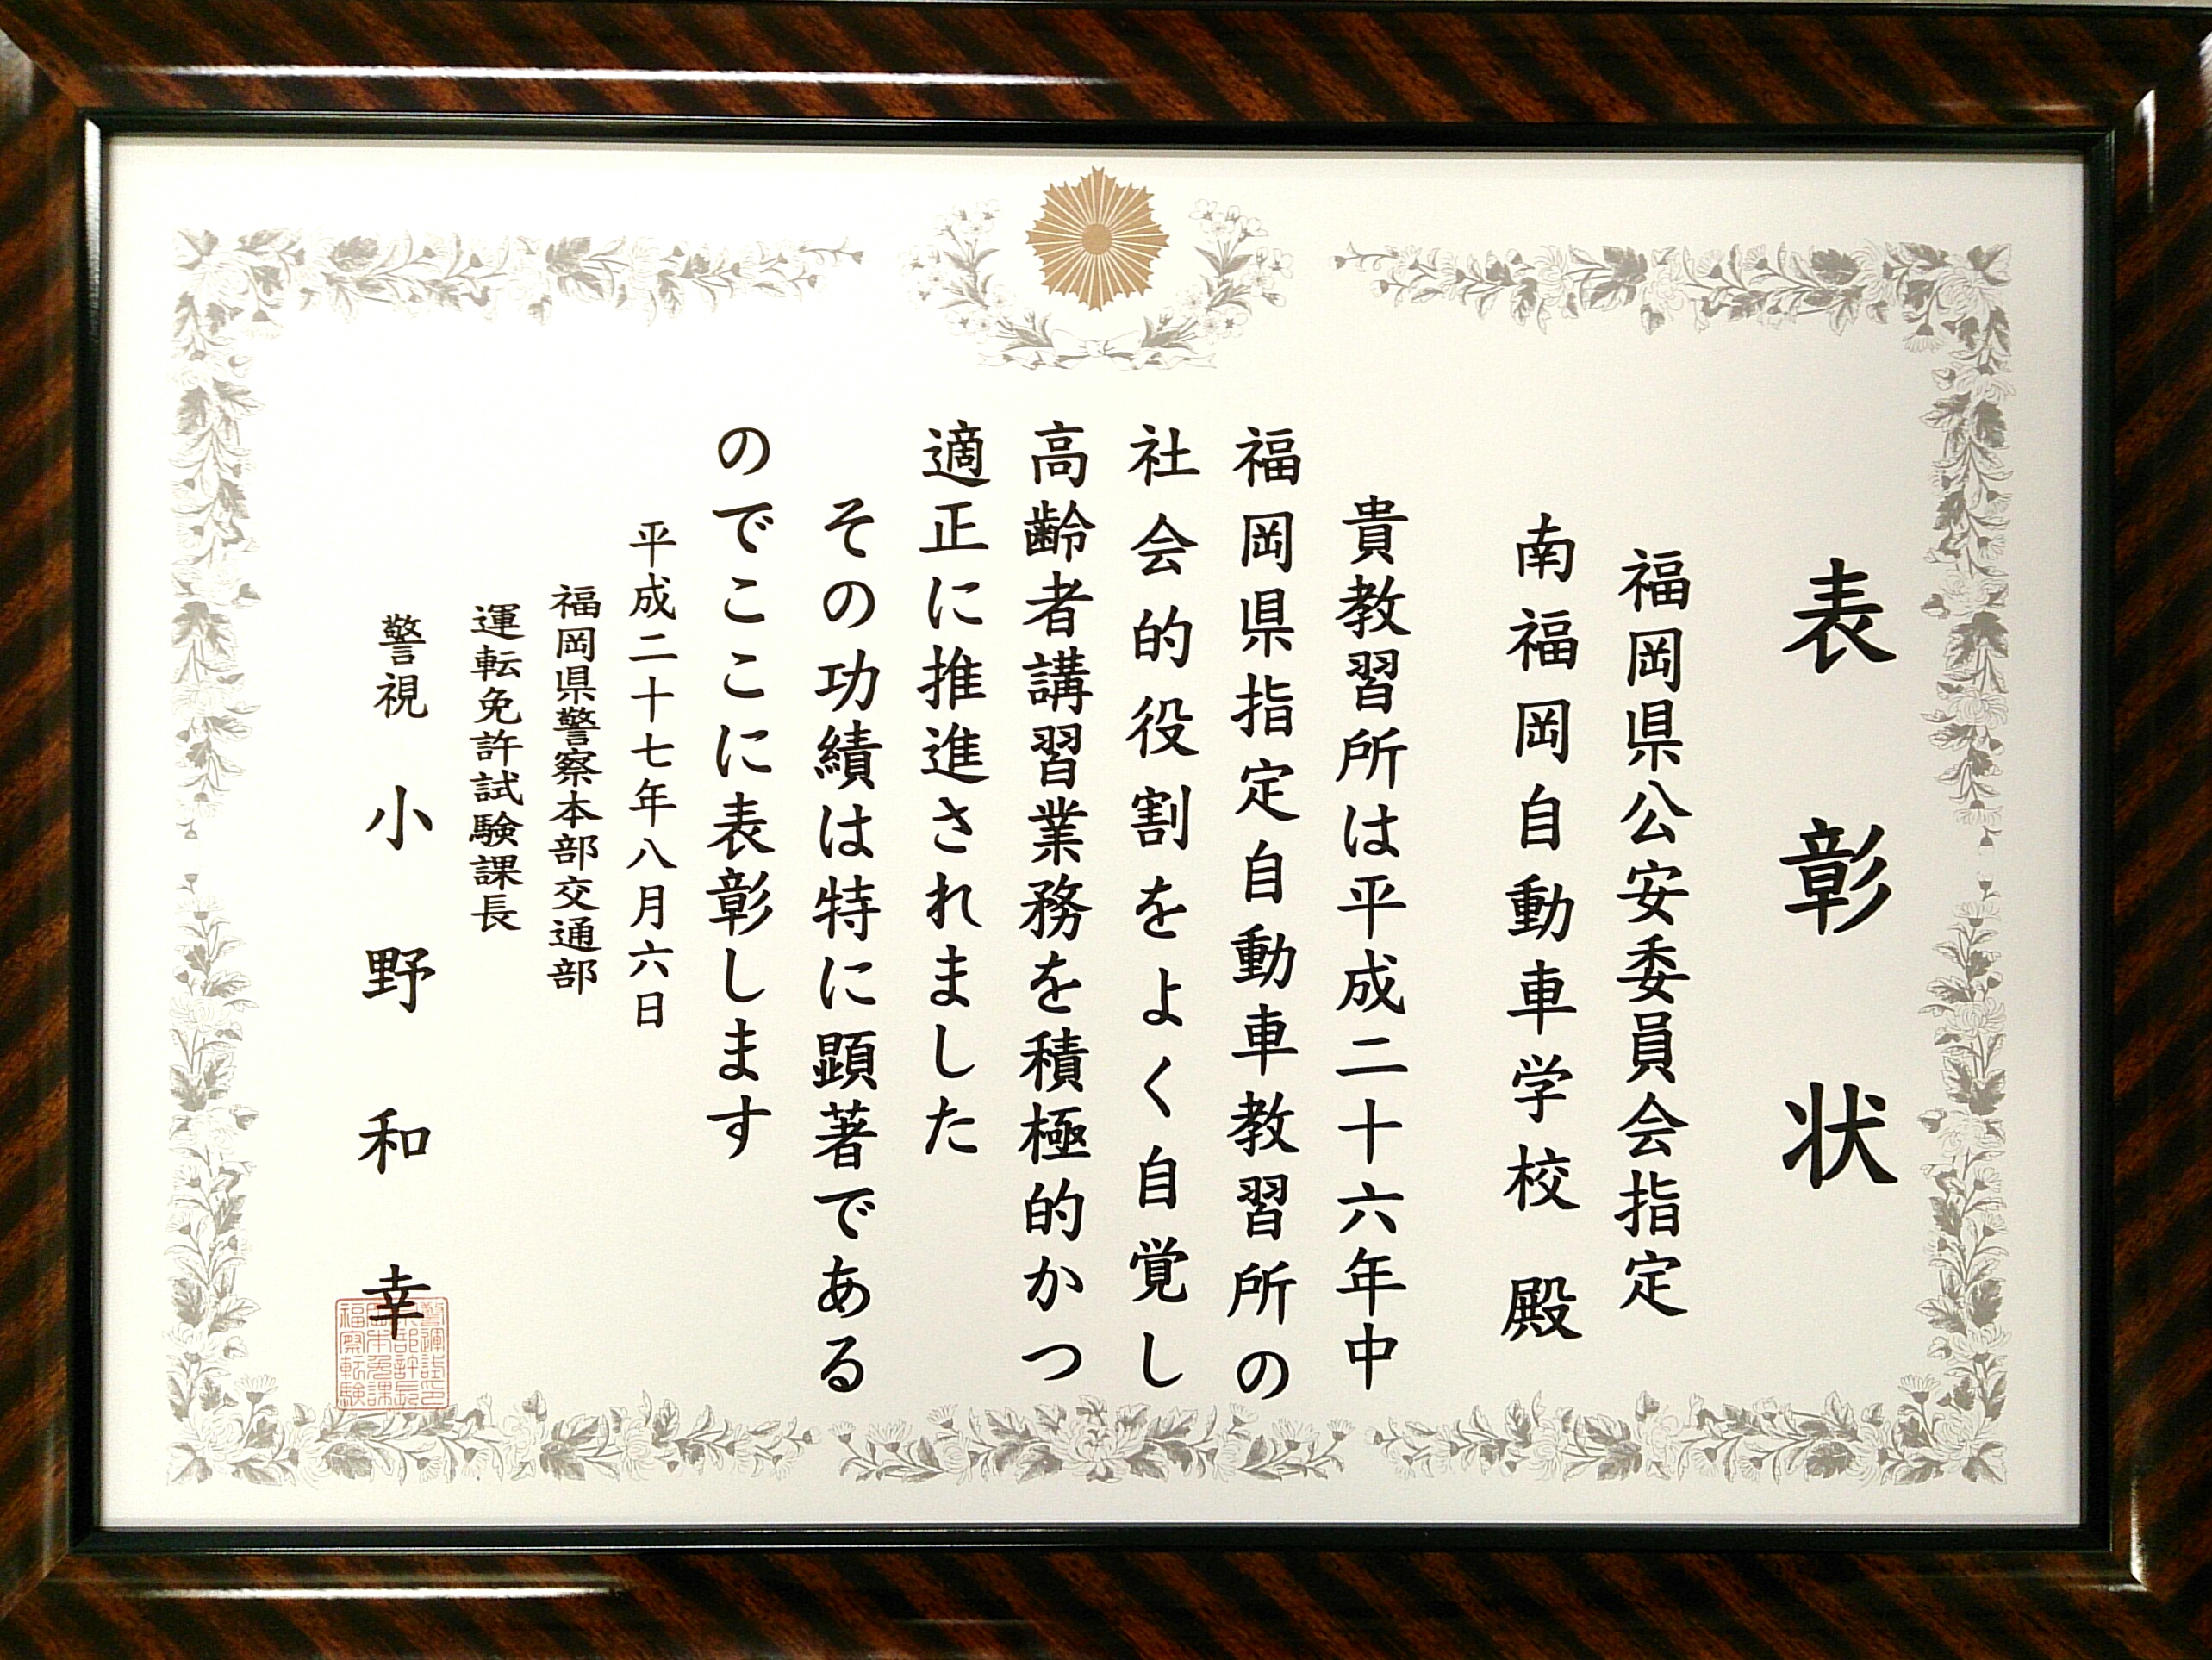 表彰状
福岡県公安委員会指定
南福岡自動車学校 殿
貴教習所は平成二十六年中
福岡県指定自動車教習所の
社会的役割をよく自覚し
高齢者講習業務を積極的かつ
適正に推進されました
その功績は特に顕著である
のでここに表彰します
平成二十七年八月六日
福岡県警察本部交通部
運転免許試験課長
警視 小野和幸